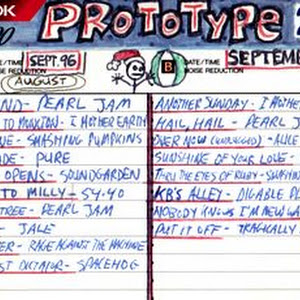 OOK
PROTOTYPE
E/TIME SEPT. 96
NOISE REDUCTION
AUGUST
B
DATE/TIME SEPTEME
NOISE REDUCTION
ND - PEARL JAM
TO MOXTON - I MOTHER EARTH
VE - SMASHING PUMPKINS
DE - PURE
OPENS - SOUNDGARDEN
TO MILLY - 54·40
TREE - PEARL JAM
- JALE
ER - RAGE AGAINST THE MACHINE
ST DICTATOR - SPACEHOG
ANOTHER SUNDAY - I MOTHE
HAIL, HAIL - PEARL J
OVER NOW (UNPLUGGED) - ALICE
SUNSHINE OF YOUR LOVE -
THRU THE EYES OF RUBY - SMASHIN
KB'S ALLEY - DIGABLE PL
NOBODY KNOWS I'M NEW WA
PUT IT OFF - TRAGICALLY